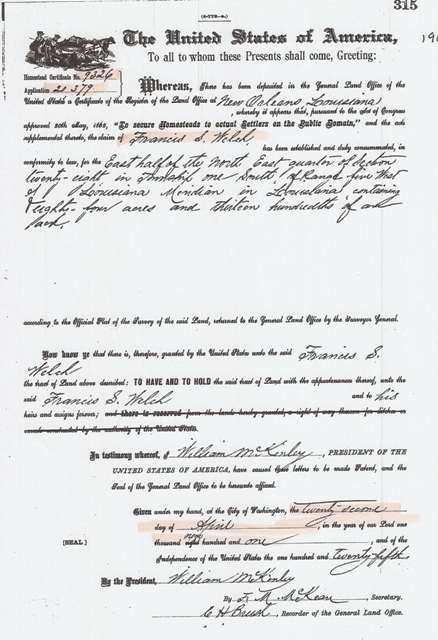 315
(4-772-a.)
190
The United States of America,
To all to whom these Presents shall come, Greeting:
Homestead Certificate No. 9326
Application 21379
Whereas, There has been deposited in the General Land Office of the
United States a Certificate of the Register of the Land Office at New Orleans, Louisiana
, whereby it appears that, pursuant to the Act of Congress
approved 20th May, 1862, "To secure Homesteads to actual Settlers on the Public Domain," and the acts
supplemental thereto, the claim of Francis S. Welch,
has been established and duly consummated, in
conformity to law, for the East half of the North East quarter of Section
twenty-eight in Township one South of Range five West
of Louisiana Meridian in Louisiana containing
eighty-four acres and thirteen hundredths of an
acre.
according to the Official Plat of the Survey of the said Land, returned to the General Land Office by the Surveyor General.
Now know ye that there is, therefore, granted by the United States unto the said Francis S.
Welch
the tract of Land above described: TO HAVE AND TO HOLD the said tract of Land with the appurtenances thereof, unto the
said Francis S. Welch and to his
heirs and assigns forever; and there is reserved from the lands hereby granted, a right of way thereon for ditches or
canals constructed by the authority of the United States.
In testimony whereof, I William McKinley, PRESIDENT OF THE
UNITED STATES OF AMERICA, have caused these letters to be made Patent, and the
Seal of the General Land Office to be hereunto affixed.
Given under my hand, at the City of Washington, the twenty second
day of April, in the year of our Lord one
thousand nine hundred and one, and of the
[SEAL]
Independence of the United States the one hundred and twenty fifth
By the President, William McKinley
By F. M. McKean, Secretary.
C H Brush, Recorder of the General Land Office.